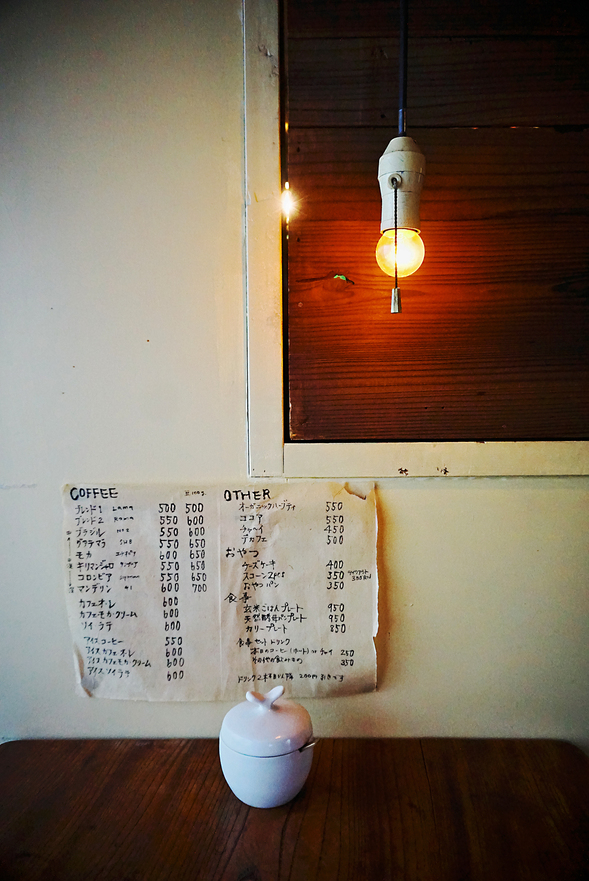 COFFEE
ブレンド1 500 500
ブレンド2 550 600
ブラジル 550 650
グアテマラ 550 650
モカ 600
キリマンジャロ 550 650
コロンビア 550 650
マンデリン 600 700
カフェオレ 600
カフェモカ・クリーム 600
ソイラテ 600
アイスコーヒー 550
アイスカフェオレ 600
アイスカフェモカ・クリーム 600
アイスソイラテ 600
OTHER
オーガニックハーブティ 550
ココア 550
チャイ 450
デカフェ 500
おやつ
チーズケーキ 400
スコーン2pcs 350
おやつパン 350
食事
玄米ごはんプレート 950
天然酵母パンプレート 950
カリープレート 850
食事セットドリンク
本日のコーヒー(ホット) or チャイ 250
その他の飲みもの 350
ドリンク2杯目以降 200円引きです